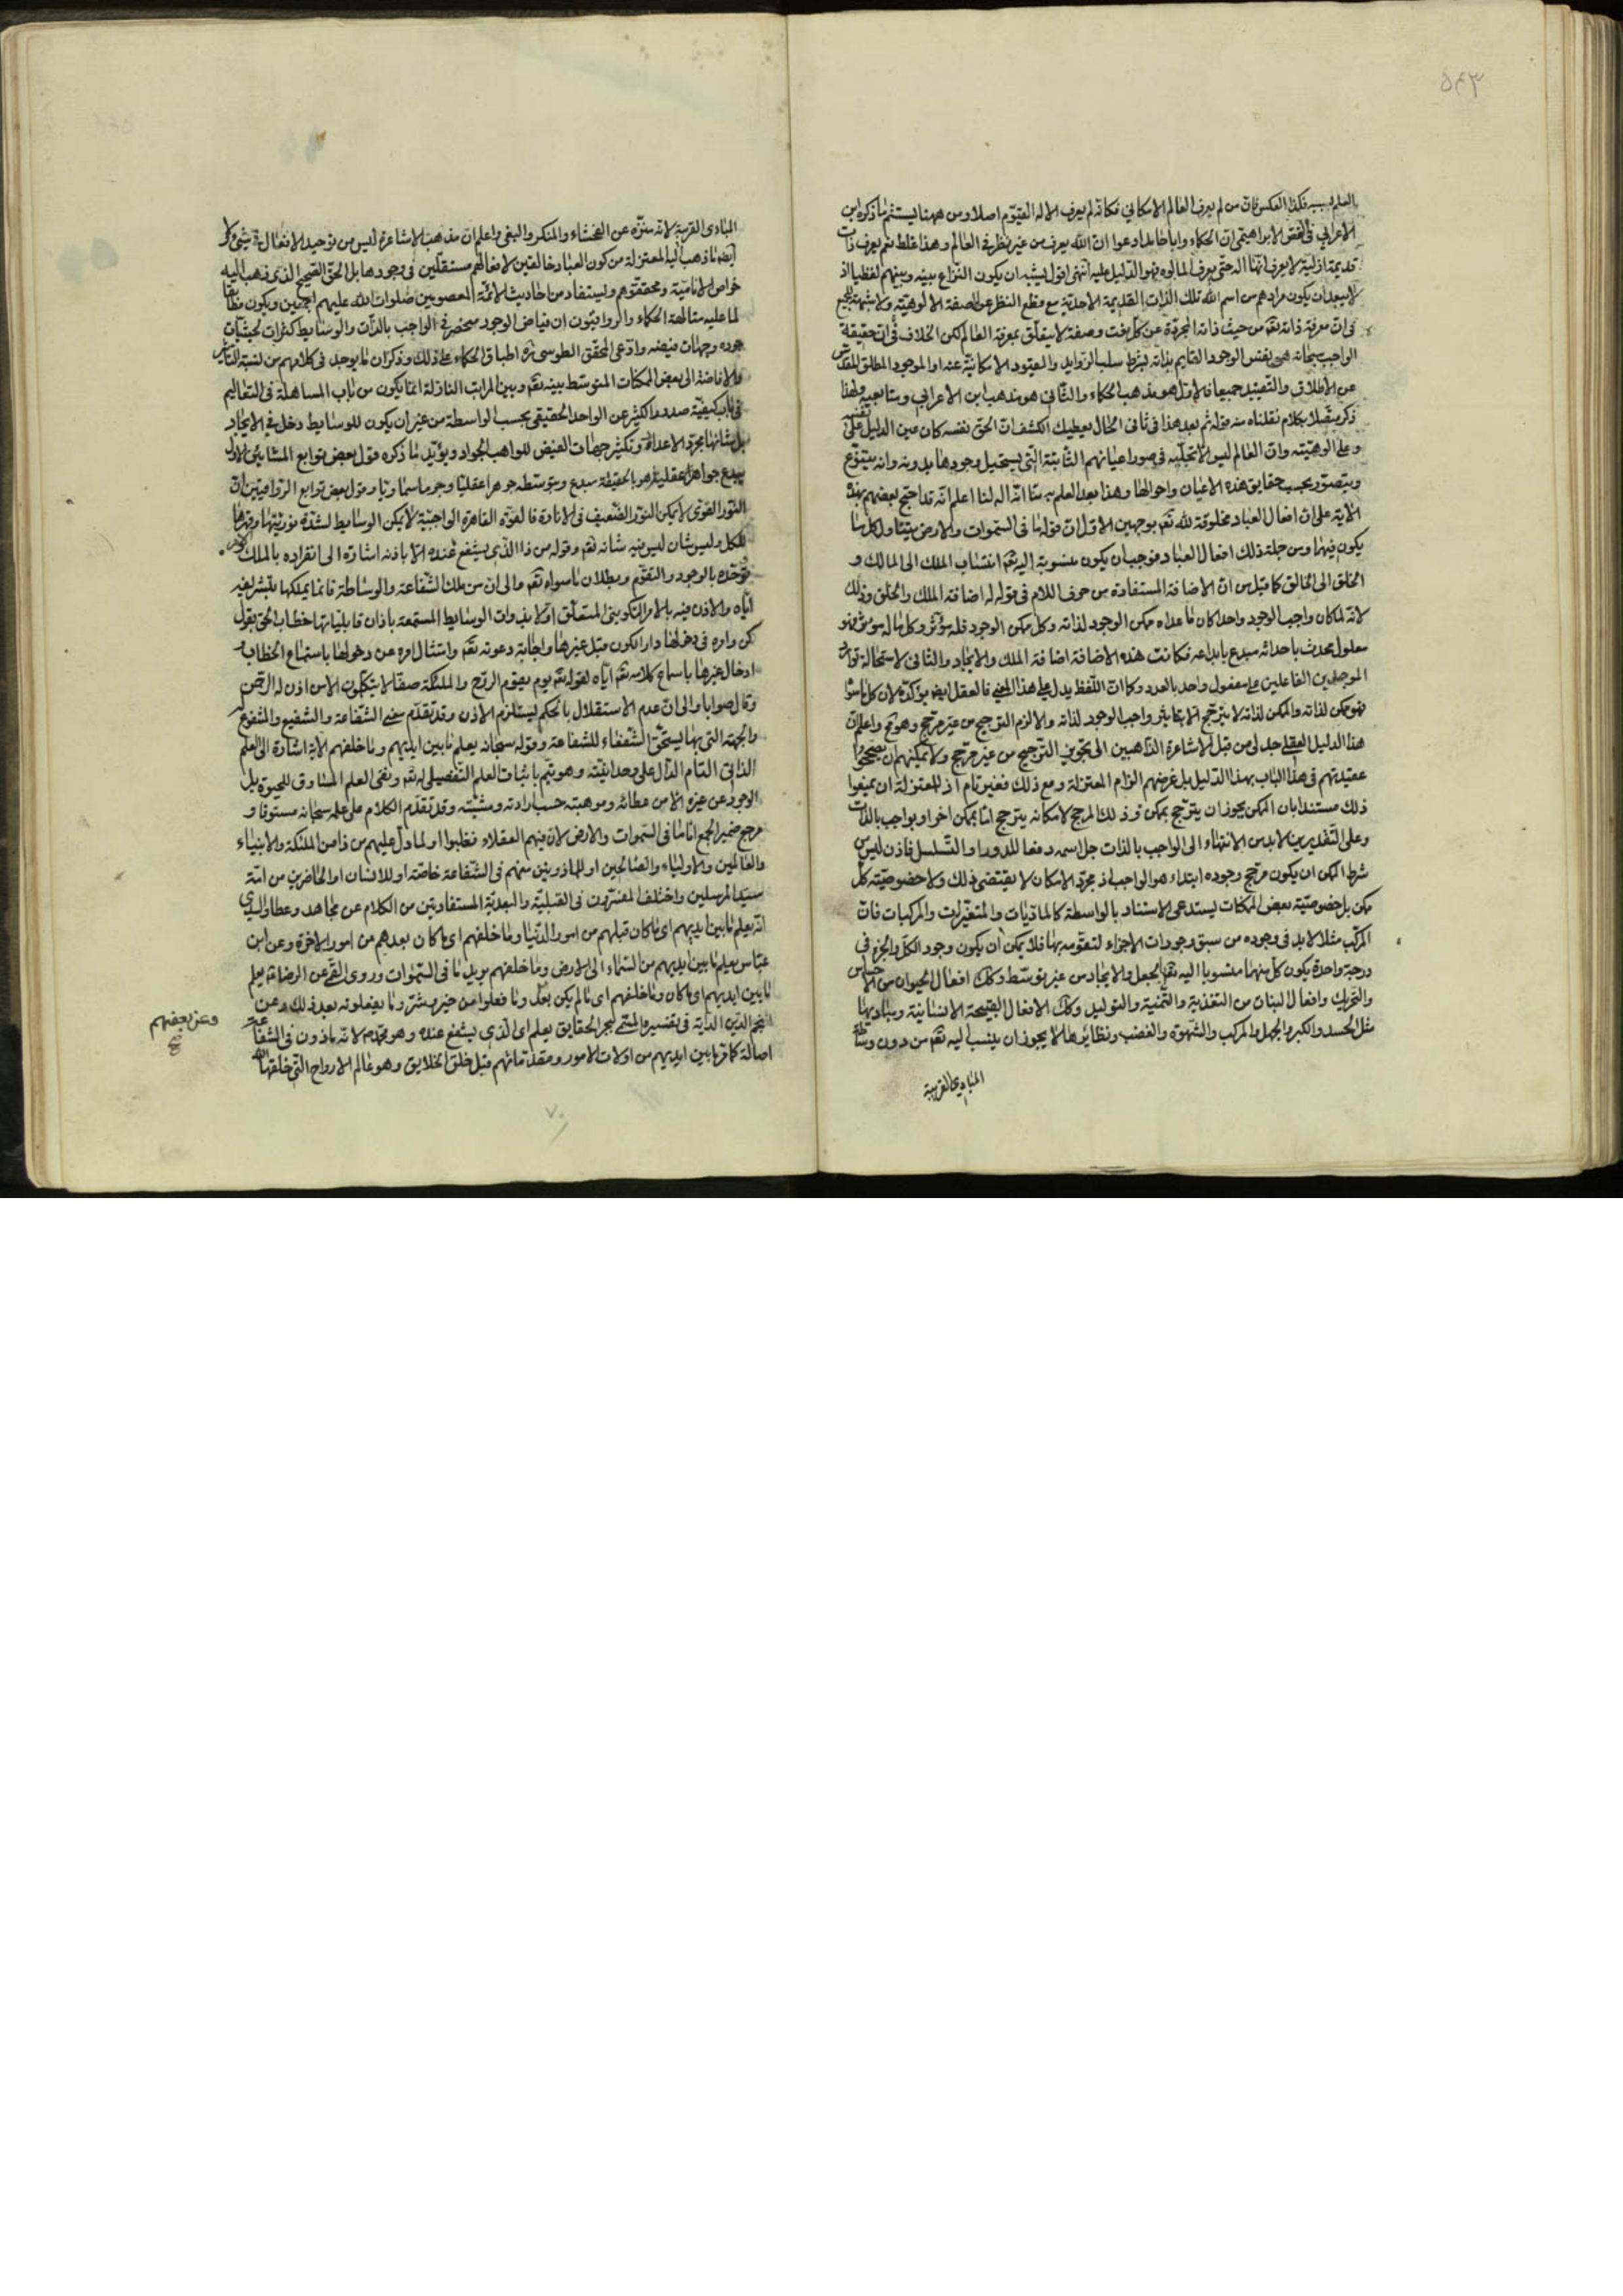 ٥٤٣
بالعلم بسببه فكذا العكس فان من لم يعرف العالم الامكاني فكانه لم يعرف الاله القيوم اصلا ومن ههنا يستشم ما ذكره ابن
الاعرابي في الفص الابراهيمي ان الحكماء وابا حامد ادعوا ان الله يعرف من غير نظر في العالم وهذا غلط نعم يعرف ذات
قديمة ازلية لا يعرف انها اله حتى يعرف المالوه فهو الدليل عليه انتهى اقول يشبه ان يكون النزاع بينه وبينهم لفظيا اذ
لا يبعد ان يكون مرادهم من اسم الله تلك الذات القديمة الاحدية مع قطع النظر عن صفة الالوهية ولا شبهة
في ان معرفة ذاته تعم من حيث ذاته المجردة عن كل نعت وصفة لا يتعلق بمعرفة العالم لكن الخلاف في ان حقيقة
الواجب سبحانه هو نفس الوجود القايم بذاته بشرط سلب الزوايد والقيود الامكانية عنه او الموجود المطلق المقدس
عن الاطلاق والتقييد جميعا فالاول هو مذهب الحكماء والثاني هو مذهب ابن الاعرابي ومتابعيه ولهذا
ذكر متصلا بكلام نقلناه منه قوله ثم بعد هذا في ثاني الحال يعطيك الكشف ان الحق نفسه كان عين الدليل على نفسه
وعلى الوهيته وان العالم ليس الا تجليه في صور اعيانهم الثابتة التي يستحيل وجودها بدونه وانه يتنوع
ويتصور بحسب حقايق هذه الاعيان واحوالها وهذا بعد العلم به منا انه اله لنا اعلم انه قد احتج بعضهم بهذه
الاية على ان افعال العباد مخلوقة لله تعم بوجهين الاول ان قوله ما في السموات والارض يتناول كل ما
يكون فيهما ومن جملة ذلك افعال العباد فوجب ان يكون منسوبة اليه تعم انتساب الملك الى المالك و
الخلق الى الخالق كما قيل من ان الاضافة المستفادة من حرف اللام في قوله له اضافة الملك والخلق وذلك
لانه لما كان واجب الوجود واحدا كان ما عداه ممكن الوجود لذاته وكل ممكن الوجود فله مؤثر وكل ما له مؤثر فهو
معلول محدث باحداثه مبدع بابداعه فكانت هذه الاضافة اضافة الملك والايجاد والثاني لاستحالة توارد
الموجدين الفاعلين على مفعول واحد بالعدد وكما ان اللفظ يدل على هذا المعنى فالعقل ايضا يؤكده لان كل ما سواه
فهو ممكن لذاته والممكن لذاته لا يترجح الا بتاثير واجب الوجود لذاته والا لزم الترجيح من غير مرجح وهو مح واعلم ان
هذا الدليل العقلي جدلي من قبل الاشاعرة الذاهبين الى تجويز الترجيح من غير مرجح ولا يمكنهم ان يصححوا
عقيدتهم في هذا الباب بهذا الدليل بل غرضهم الزام المعتزلة ومع ذلك فغير تام اذ للمعتزلة ان يمنعوا
ذلك مستندا بان الممكن يجوز ان يترجح بممكن ثم ذلك المرجح لامكانه يترجح اما بممكن اخر او بواجب بالذات
وعلى التقديرين لا بد من الانتهاء الى الواجب بالذات جل اسمه دفعا للدور او التسلسل فاذن ليس من
شرط الممكن ان يكون مرجح وجوده ابتداء هو الواجب اذ مجرد الامكان لا يقتضي ذلك ولا خصوصية كل
ممكن بل خصوصية بعض الممكنات يستدعي الاستناد بالواسطة كالماديات والمتغيرات والمركبات فان
المركب مثلا لا بد في وجوده من سبق وجودات الاجزاء لتقومه بها فلا يمكن ان يكون وجود الكل والجزء في
درجة واحدة يكون كل منهما منسوبا اليه تعم بالجعل والايجاد من غير توسط وكذلك افعال الحيوان من الاحساس
والتحريك وافعال النبات من التغذية والتنمية والتوليد وكذلك الافعال القبيحة الانسانية ومباديها
مثل الحسد والكبر والجهل المركب والشهوة والغضب ونظائرها لا يجوز ان ينسب اليه تعم من دون وساطة
المبادي القريبة
المبادي القريبة لانه منزه عن الفحشاء والمنكر والبغي واعلم ان مذهب الاشاعرة ليس من توحيد الافعال في شيء ولا
ايضا ما ذهب اليه المعتزلة من كون العباد خالقين لافعالهم مستقلين في وجودها بل الحق القبيح الذي ذهب اليه
خواص الامامية ومحققوهم ويستفاد من احاديث الائمة المعصومين صلوات الله عليهم اجمعين ويكون مطابقا
لما عليه متالهة الحكماء والرواقيون ان فياض الوجود منحصر في الواجب بالذات والوسايط كثرات لحيثيات
جوده وجهات فيضه وادعى المحقق الطوسي ره اطباق الحكماء على ذلك وذكر ان ما يوجد في كلامهم من نسبة التاثير
والافاضة الى بعض الممكنات المتوسط بينه تعم وبين المراتب النازلة انما يكون من باب المساهلة في التعاليم
في باب كيفية صدور الكثير عن الواحد الحقيقي بحسب الواسطة من غير ان يكون للوسايط دخل في الايجاد
بل شانها مجرد الاعداد وتكثير جهات الفيض للواهب الجواد ويؤيد ما ذكره قول بعض توابع المشائين الاول
يبدع جواهرا عقليا هو بالحقيقة مبدع وبتوسطه جوهرا عقليا وجرما سماويا وقول بعض توابع الرواقيين ان
النور القوي لا يمكن النور الضعيف في الانارة فالقوة القاهرة الواجبية لا يمكن الوسايط لشدة نوريتها وقهرها
للكل وليس شان ليس فيه شانه تعم وقوله من ذا الذي يشفع عنده الا باذنه اشارة الى انفراده بالملك
وتوحده بالوجود والتقوم وبطلان ما سواه تعم والى ان من ملك الشفاعة والوساطة فانما يملكها بتشريفه
اياه والاذن فيه بالامر التكويني المتعلق اولا بذوات الوسايط المستمعة باذان قابلياتها خطاب الحق بقول
كن وامره في دخولها دار الكون قبل غيرها واجابة دعوته تعم وامتثال امره عن دخولها باستماع الخطاب و
ادخال غيرها باسماع كلامه تعم اياه لقوله تعم يوم يقوم الروح والملئكة صفا لا يتكلمون الا من اذن له الرحمن
وقال صوابا والى ان عدم الاستقلال بالحكم يستلزم الاذن وقد تقدم معنى الشفاعة والشفيع والمشفوع له
والجهة التي بها يستحق الشفعاء للشفاعة وقوله سبحانه يعلم ما بين ايديهم وما خلفهم الاية اشارة الى العلم
الذاتي التام الدال على وحدانيته وهو يتم باثبات العلم التفصيلي له تعم ونفي العلم المساوق للحيوة بل
الوجود عن غيره الا من عطائه وموهبته حسب ارادته ومشيته وقد تقدم الكلام على علمه سبحانه مستوفا و
مرجع ضمير الجمع اما ما في السموات والارض لان فيهم العقلاء فغلبوا او لما دل عليهم من ذا من الملئكة والانبياء
والعالمين والاولياء والصالحين او للماذونين منهم في الشفاعة خاصة او للانسان او الحاضرين من امة
سيد المرسلين واختلف المفسرون في القبلية والبعدية المستفادتين من الكلام عن مجاهد وعطا والسدي
انه يعلم ما بين ايديهم اي ما كان قبلهم من امور الدنيا وما خلفهم اي ما كان بعدهم من امور الاخرة وعن ابن
عباس يعلم ما بين ايديهم من السماء الى الارض وما خلفهم يريد ما في السموات وروى القمي عن الرضا يعلم
ما بين ايديهم اي ما كان وما خلفهم اي ما لم يكن بعد وما فعلوا من خير وشر وما يفعلونه بعد ذلك وعن
نجم الدين الداية في تفسيره المسمى ببحر الحقايق يعلم اي الذي يشفع عنده وهو محمد ص لانه ماذون في الشفاعة
اصالة كما مر ما بين ايديهم من اولات الامور ومقدماتهم قبل خلق الخلايق وهو عالم الارواح التي خلقها الله
وعن بعضهم
٧٠